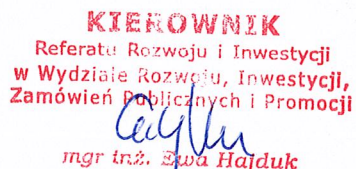 KIEROWNIK
Referatu Rozwoju i Inwestycji
w Wydziale Rozwoju, Inwestycji,
Zamówień Publicznych i Promocji
mgr inż. Ewa Hajduk